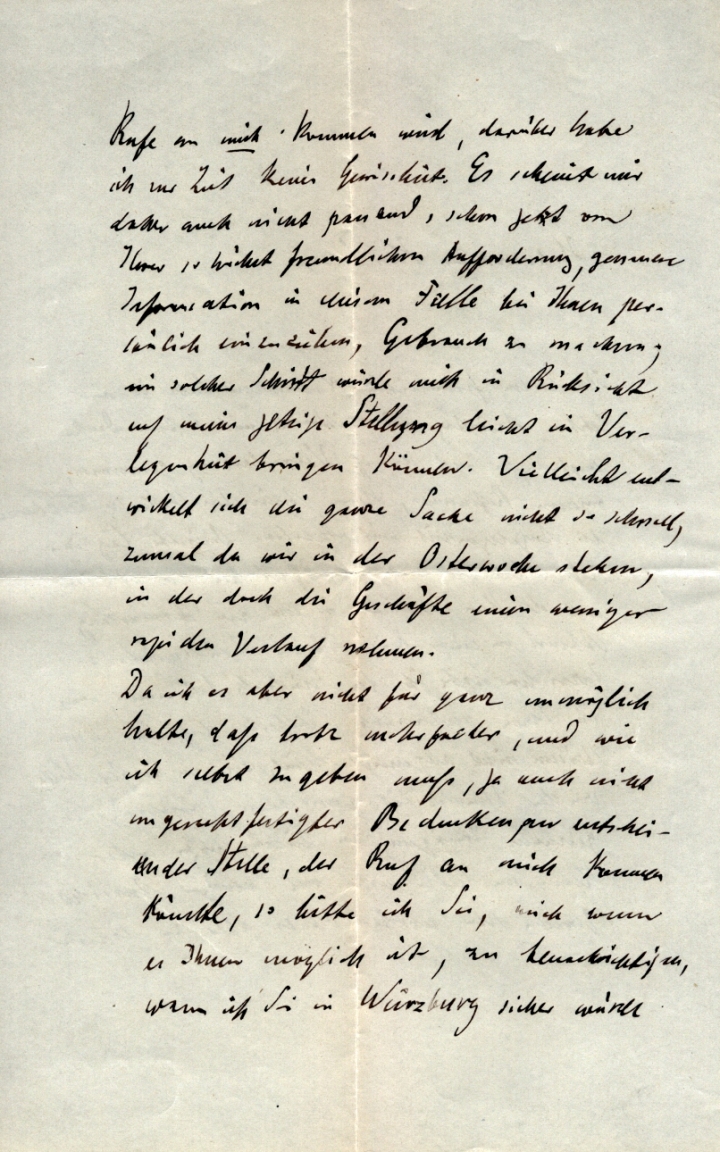 Rufe an mich kommen wird, darüber habe
ich zur Zeit keine Gewissheit. Es scheint mir
daher auch nicht passend, schon jetzt von
Ihrer so höchst freundlichen Aufforderung, genauere
Information in diesem Falle bei Ihnen per-
sönlich einzuziehen, Gebrauch zu machen;
ein solcher Schritt würde mich in Rücksicht
auf meine jetzige Stellung leicht in Ver-
legenheit bringen können. Vielleicht ent-
wickelt sich die ganze Sache nicht so schnell,
zumal da wir in der Osterwoche stehen,
in der doch die Geschäfte einen weniger
rapiden Verlauf nehmen.
Da ich es aber nicht für ganz unmöglich
halte, daß trotz mehrfacher, und wie
ich selbst zugeben muß, ja auch nicht
ungerechtfertigter Bedenken an entschei-
dender Stelle, der Ruf an mich kommen
könnte, so bitte ich Sie, mich wenn
es Ihnen möglich ist, zu benachrichtigen,
wann ich Sie in Würzburg sicher würde